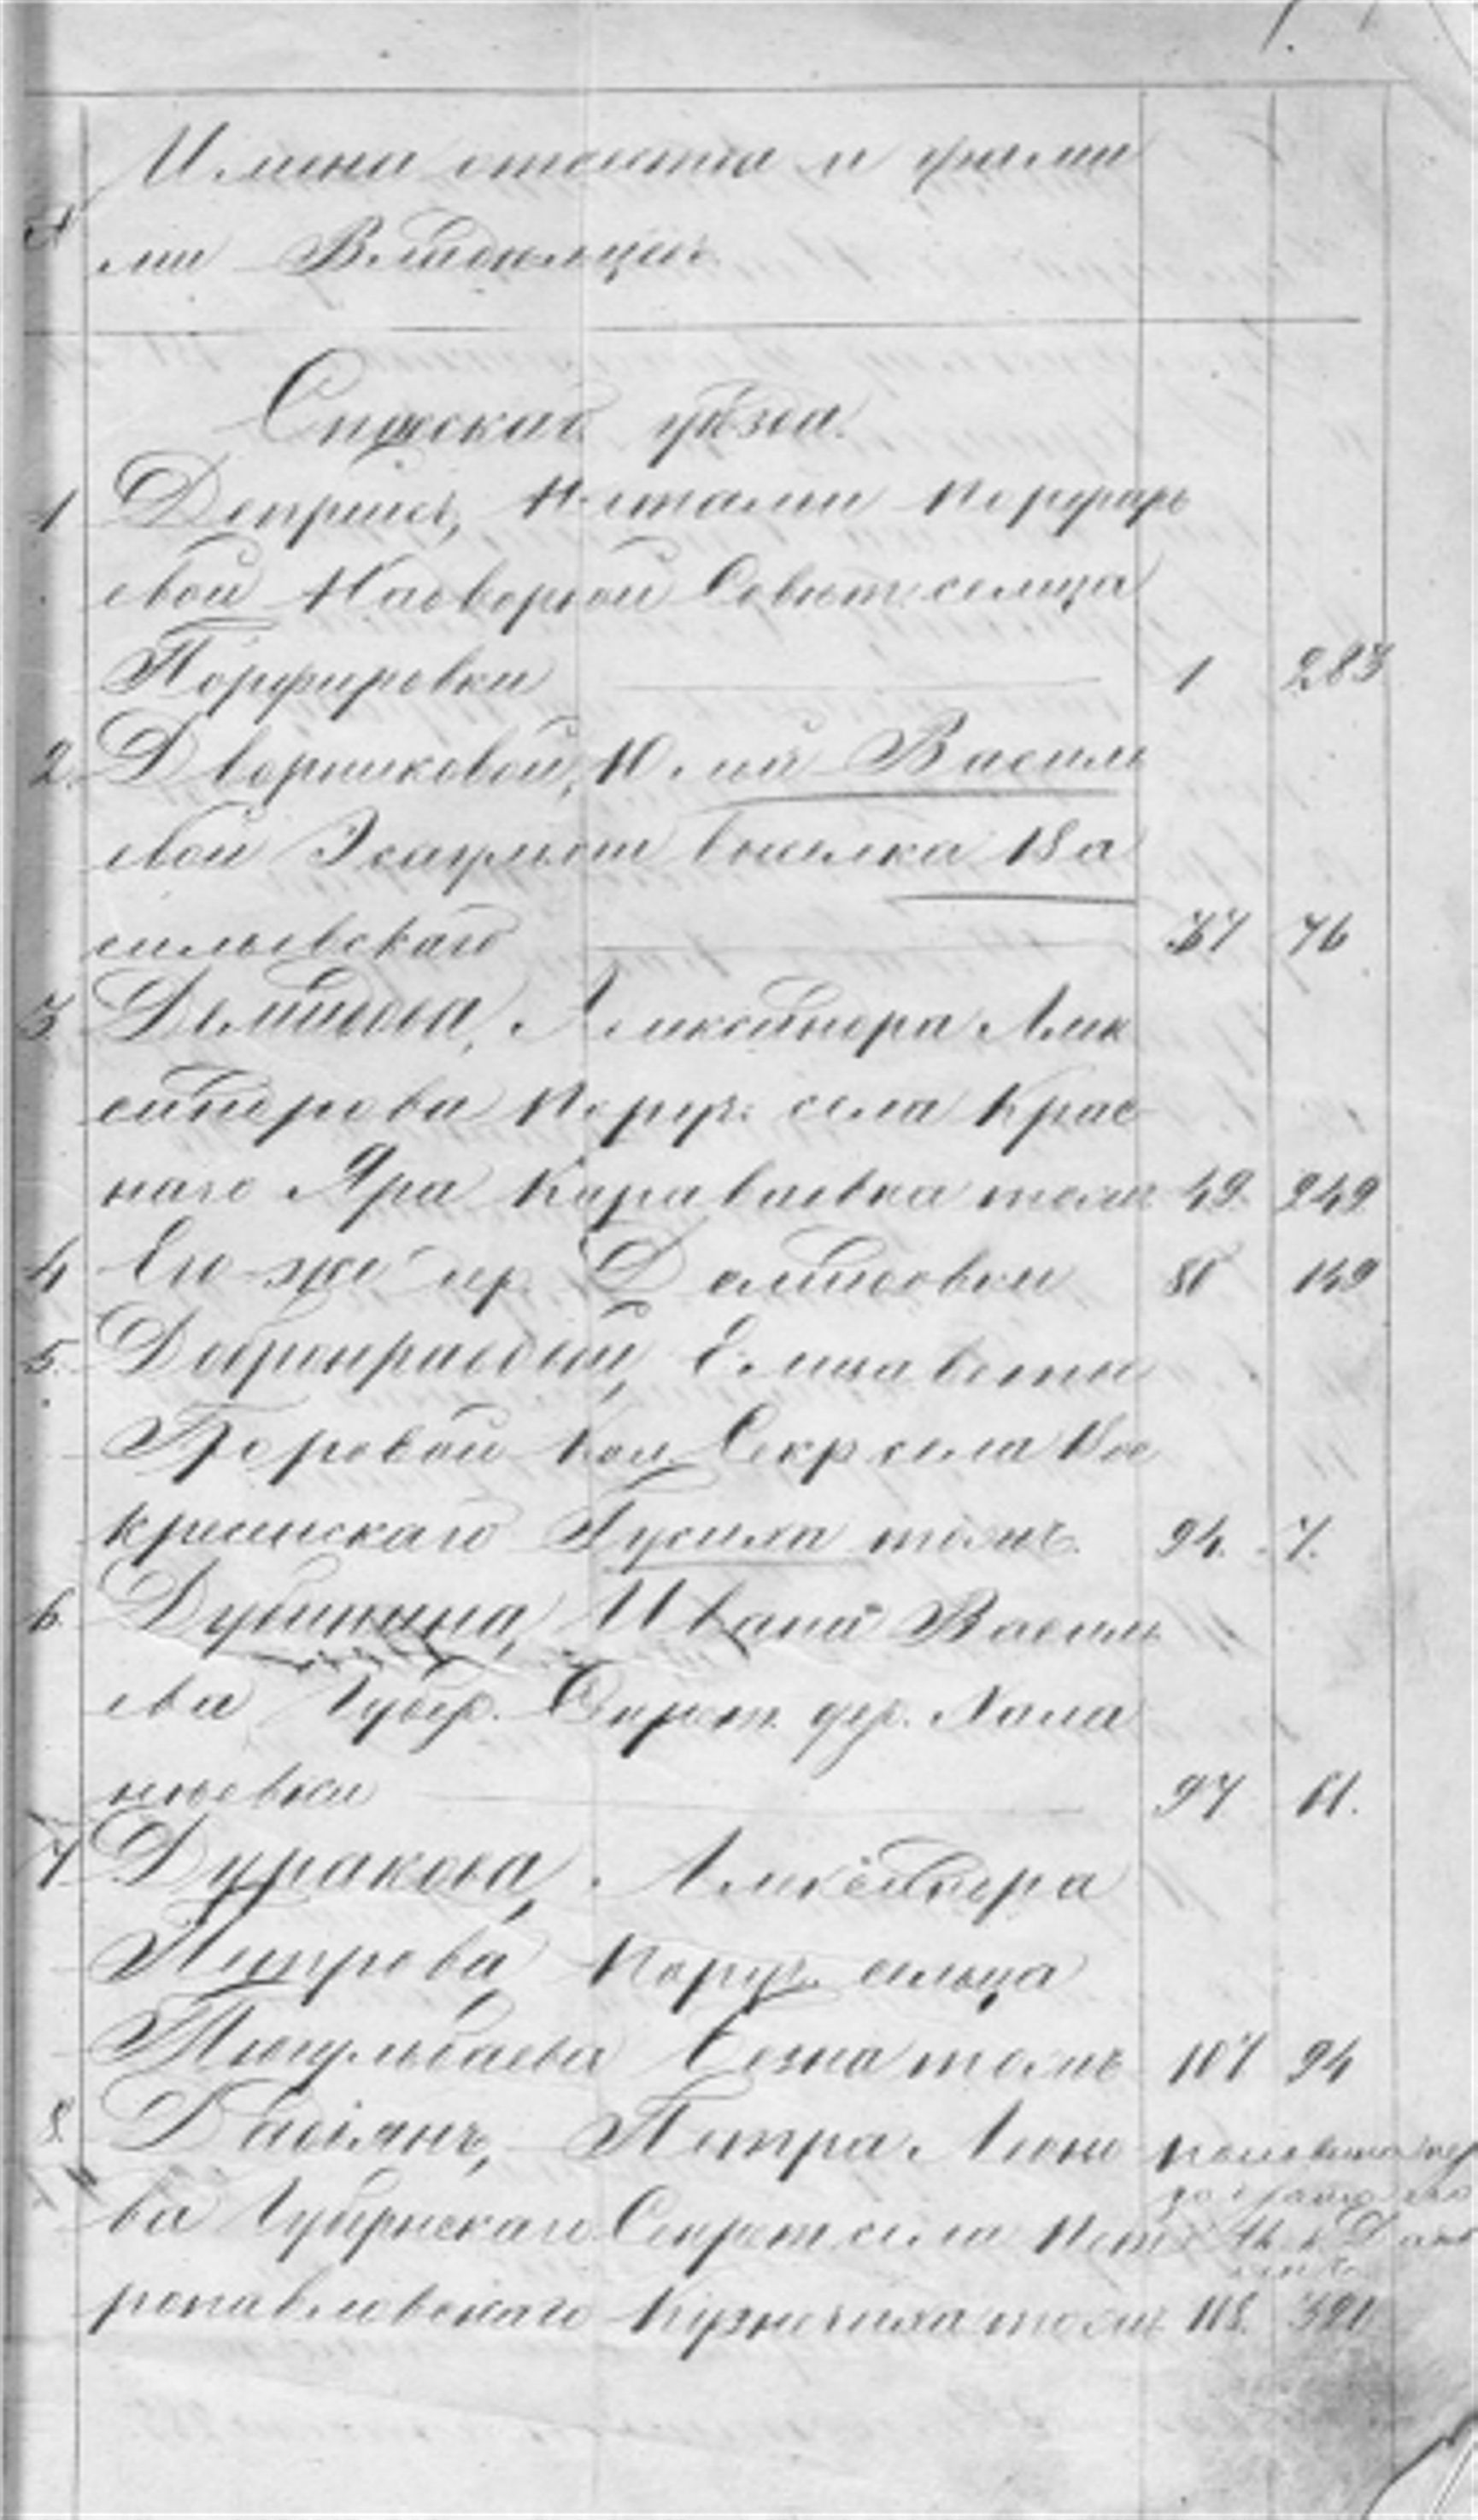 Имени отчества и фами
лии Владельцевъ
Спасскаго уѣзда.
1 Депрейсъ, Наталіи Порфирь
евой Надворной Совѣт. сельца
Порфировки 1 283
2. Дворниковой, Юліи Василь
евой Эсаульши поселка Ва
сильевскаго 37 76
3 Демидова, Александра Алек
сандрова Поруч. села Крас
наго Яра Караваевка тожъ 49. 249
4 Его-же дер. Демидовки 80 149
5. Добронравовой, Елизаветы
Егоровой Кол. Секр села Вос
кресенскаго Гусиха тожъ. 94. 7.
6. Душкина, Ивана Василь
ева Губер. Секрет. дер. Анна
ньевки 97 61.
7 Дуракова, Александра
Петрова, Поруч. сельца
Тюгульбаева Бездна тожъ 107 94
8. Петра
ва Губернскаго Секрет. села Пет
ропавловскаго Кузнечиха тожъ 118. 321